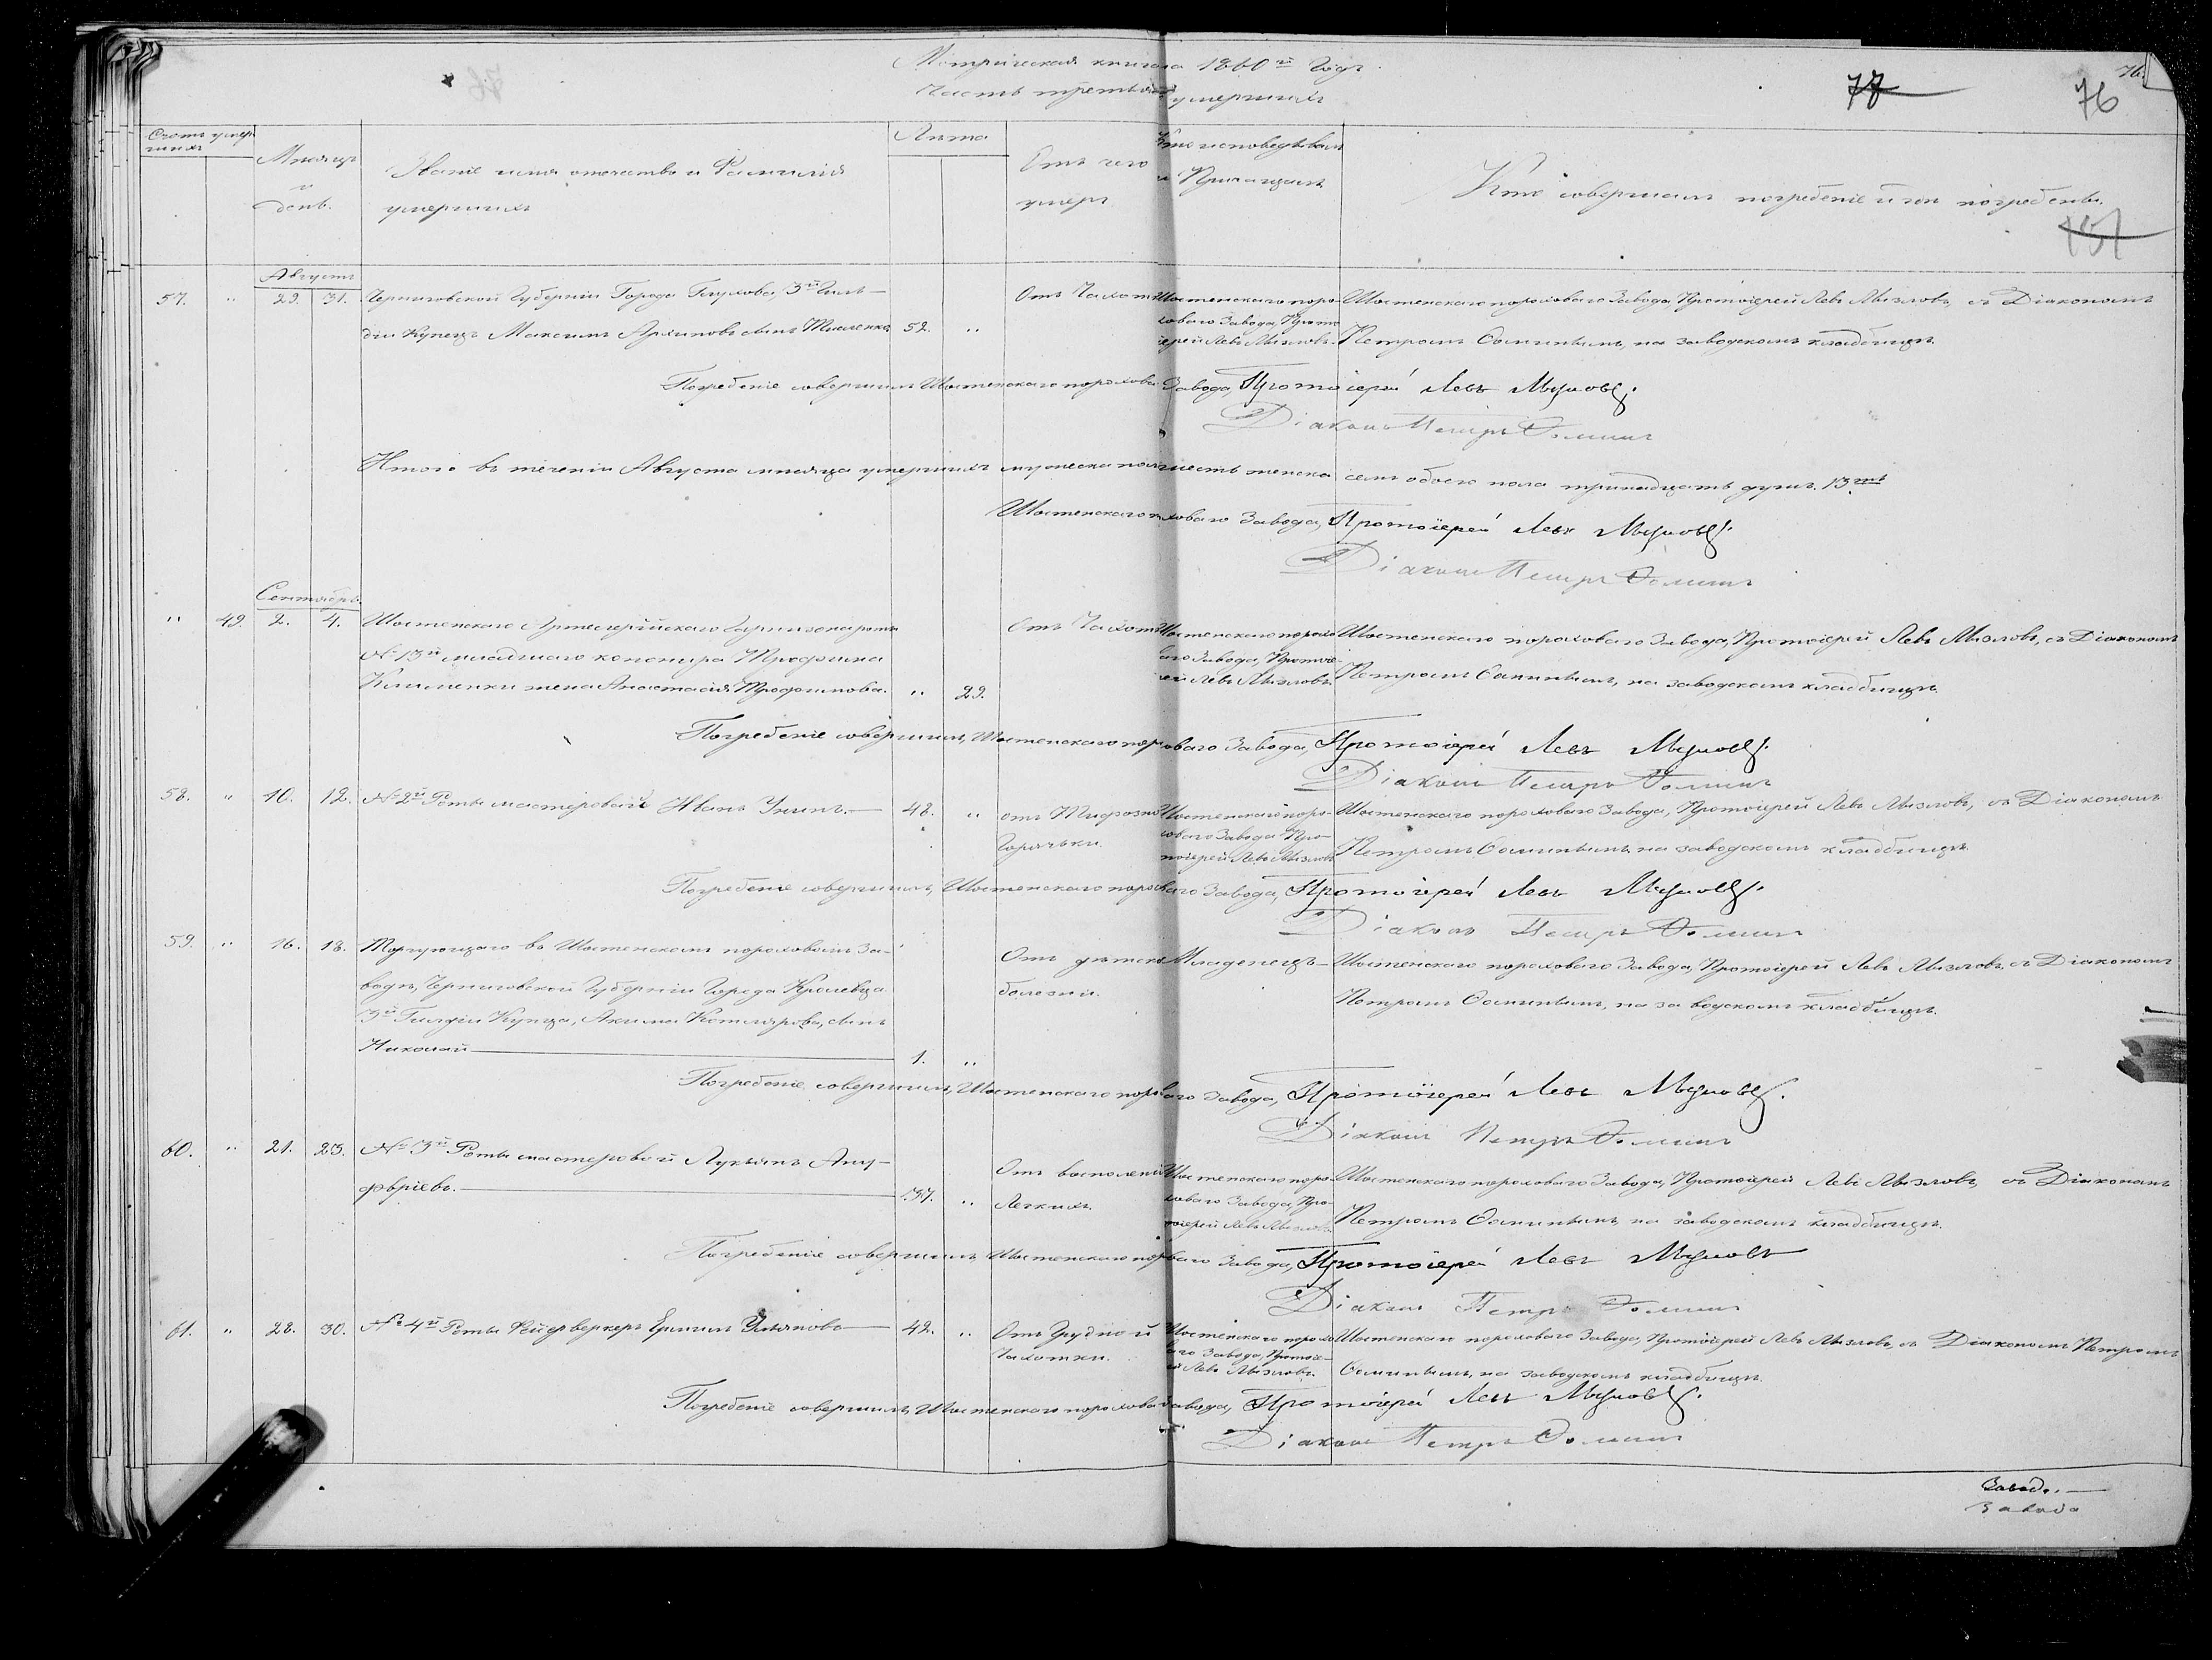 Метрическая книга на 1860й Годъ
Часть третья о умершихъ
77
76
76.
Счетъ умершихъ
Мѣсяцъ и день.
Званіе имя отечество и Фамилія умершихъ
Лѣта
Отъ чего умеръ
Кто исповѣдывалъ и Причащалъ
Кто совершалъ погребеніе и гдѣ погребены.
131
Августъ
57. " 29. 31. Черниговской Губерніи Города Глухова, 3й Гиль-
діи Купецъ Максимъ Архиповъ сынъ 52. "
Отъ Чахотки
Шостенскаго поро-
ховаго Завода, Прото
іерей Левъ Мызловъ.
Шостенскаго пороховаго Завода, Протоіерей Левъ Мызловъ, съ Діакономъ
Петромъ Ѳоминымъ, на заводскомъ кладбищѣ.
Погребеніе совершилъ Шостенскаго порохова Завода, Протоіерей Левъ Мызловъ.
Діаконъ Петръ Ѳоминъ
Итого въ теченіи Августа мѣсяца умершихъ мужеска пола шесть женска семь обоего пола тринадцать душъ. 13ть
Шостенскаго пороховаго Завода, Протоіерей Левъ Мызловъ.
Діаконъ Петръ Ѳоминъ
Сентябрь.
" 49. 2. 4. Шостенскаго Артилерійскаго Гарнизона роты
№ 13й младшаго канонира Трофима
Клименки жена Анастасія Трофимова. " 29.
Отъ Чахотки
Шостенскаго порохо
ваго Завода, Протоіе-
рей Левъ Мызловъ.
Шостенскаго пороховаго Завода, Протоіерей Левъ Мызловъ, съ Діакономъ
Петромъ Ѳоминымъ, на заводскомъ кладбищѣ.
Погребеніе совершилъ, Шостенскаго пороховаго Завода, Протоіерей Левъ Мызловъ.
Діаконъ Петръ Ѳоминъ
58. " 10. 12. № 2й Роты мастеровой Иванъ 48. "
отъ Тифозной
Горячьки.
Шостенскаго поро-
ховаго Завода Про-
тоіерей Левъ Мызловъ
Шостенскаго пороховаго Завода, Протоіерей Левъ Мызловъ, съ Діакономъ
Петромъ Ѳоминымъ, на заводскомъ кладбищѣ.
Погребеніе совершилъ, Шостенскаго пороховаго Завода, Протоіерей Левъ Мызловъ.
Діаконъ Петръ Ѳоминъ
59. " 16. 18. Торгующаго въ Шостенскомъ пороховомъ за-
водѣ, Черниговской Губерніи Города Кролевца
3й Гилдіи Купца, Акима Котлярова, сынъ
Николай 1. "
Отъ дѣтской
болезни.
Младенецъ
Шостенскаго пороховаго Завода, Протоіерей Левъ Мызловъ, съ Діакономъ
Петромъ Ѳоминымъ, на заводскомъ кладбищѣ.
Погребеніе совершилъ, Шостенскаго пороховаго Завода, Протоіерей Левъ Мызловъ.
Діаконъ Петръ Ѳоминъ
60. " 21. 23. № 3й Роты мастеровой Лукьянъ Ану-
фріевъ. 37. "
Отъ воспаленія
Легкихъ.
Шостенскаго поро-
ховаго Завода, Про-
тоіерей Левъ Мызловъ
Шостенскаго пороховаго Завода, Протоіерей Левъ Мызловъ, съ Діакономъ
Петромъ Ѳоминымъ, на заводскомъ кладбищѣ.
Погребеніе совершилъ, Шостенскаго пороховаго Завода, Протоіерей Левъ Мызловъ
Діаконъ Петръ Ѳоминъ
61. " 28. 30. № 4й Роты Фейерверкеръ Ермилъ Ульяновъ 42. "
Отъ Грудной
Чахотки.
Шостенскаго порохо
ваго Завода, Протоіе-
рей Левъ Мызловъ.
Шостенскаго пороховаго Завода, Протоіерей Левъ Мызловъ, съ Діакономъ Петромъ
Ѳоминымъ, на заводскомъ кладбищѣ.
Погребеніе совершилъ, Шостенскаго пороховаго Завода, Протоіерей Левъ Мызловъ.
Діаконъ Петръ Ѳоминъ
Завода.
Завода